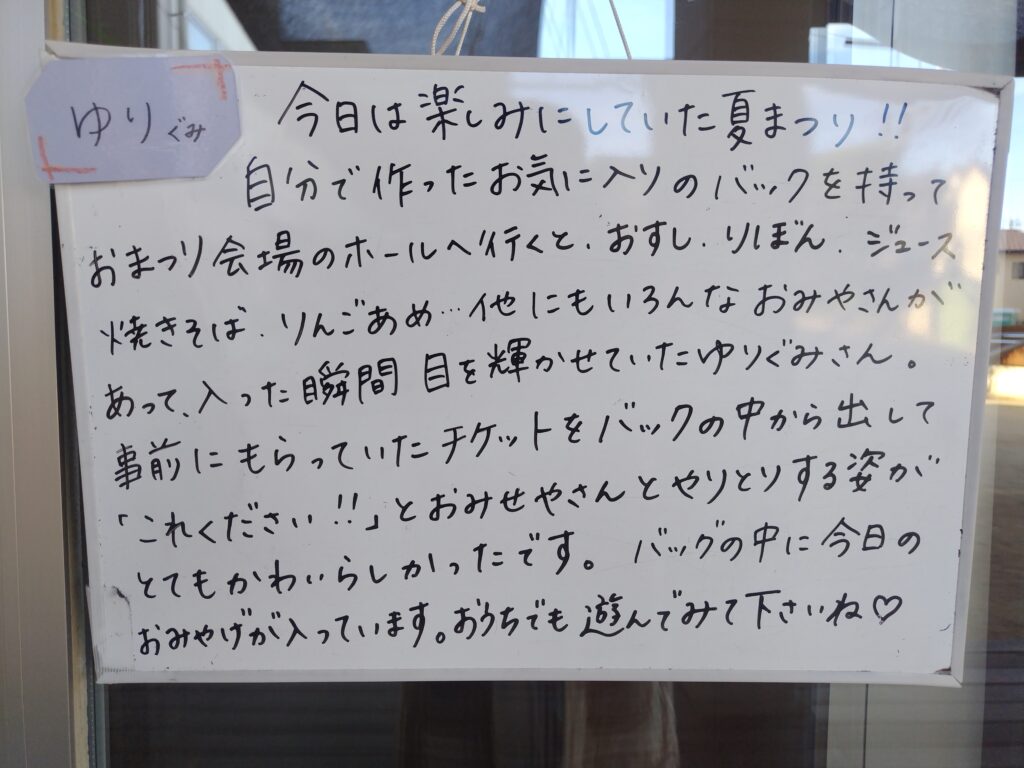 ゆりぐみ
今日は楽しみにしていた夏まつり!!
自分で作ったお気に入りのバックを持って
おまつり会場のホールへ行くと、おすし、りぼん、ジュース
焼きそば、りんごあめ…他にもいろんなおみやさんが
あって、入った瞬間 目を輝かせていたゆりぐみさん。
事前にもらっていたチケットをバックの中から出して
「これください!!」とおみせやさんとやりとりする姿が
とてもかわいらしかったです。バッグの中に今日の
おみやげが入っています。おうちでも遊んでみて下さいね♡